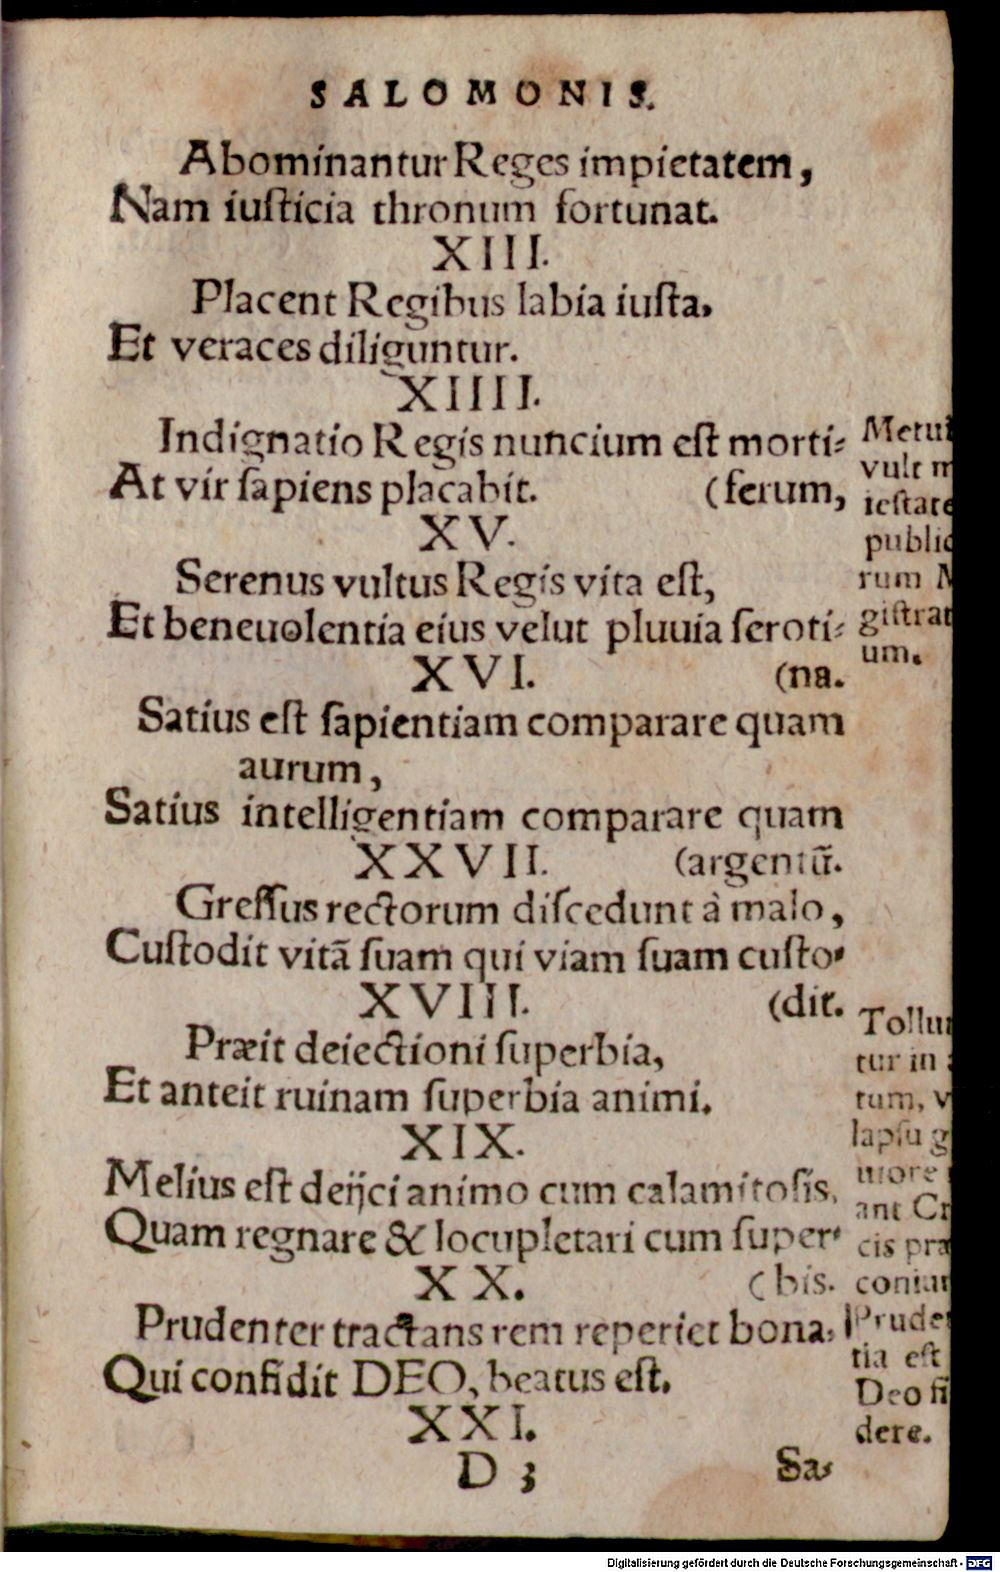 SALOMONIS.
Abominantur Reges impietatem,
Nam iuſticia thronum fortunat.
XIII.
Placent Regibus labia iuſta,
Et veraces diliguntur.
XIIII.
Indignatio Regis nuncium eſt morti⸗
At vir ſapiens placabit. (ferum,
XV.
Serenus vultus Regis vita eſt,
Et beneuolentia eius velut pluuia ſeroti⸗
XVI. (na.
Satius eſt ſapientiam comparare quam
aurum,
Satius intelligentiam comparare quam
XXVII. (argentũ.
Greſſus rectorum diſcedunt à malo,
Cuſtodit vitã ſuam qui viam ſuam cuſto⸗
XVIII. (dit.
Præit deiectioni ſuperbia,
Et anteit ruinam ſuperbia animi.
XIX.
Melius eſt deijci animo cum calamitoſis,
Quam regnare & locupletari cum ſuper⸗
XX. (bis.
Prudenter tractans rem reperiet bona,
Qui confidit DEO, beatus eſt.
XXI.
D 3 Sa⸗
Metui
vult m
ieſtate
public
rum M
giſtrat
um.
Tollun
tur in
tum, v
lapſu g
uiore
ant Cr
cis præ
coniun
Pruden
tia eſt
Deo fi
dere.
Digitalisierung gefördert durch die Deutsche Forschungsgemeinschaft - DFG